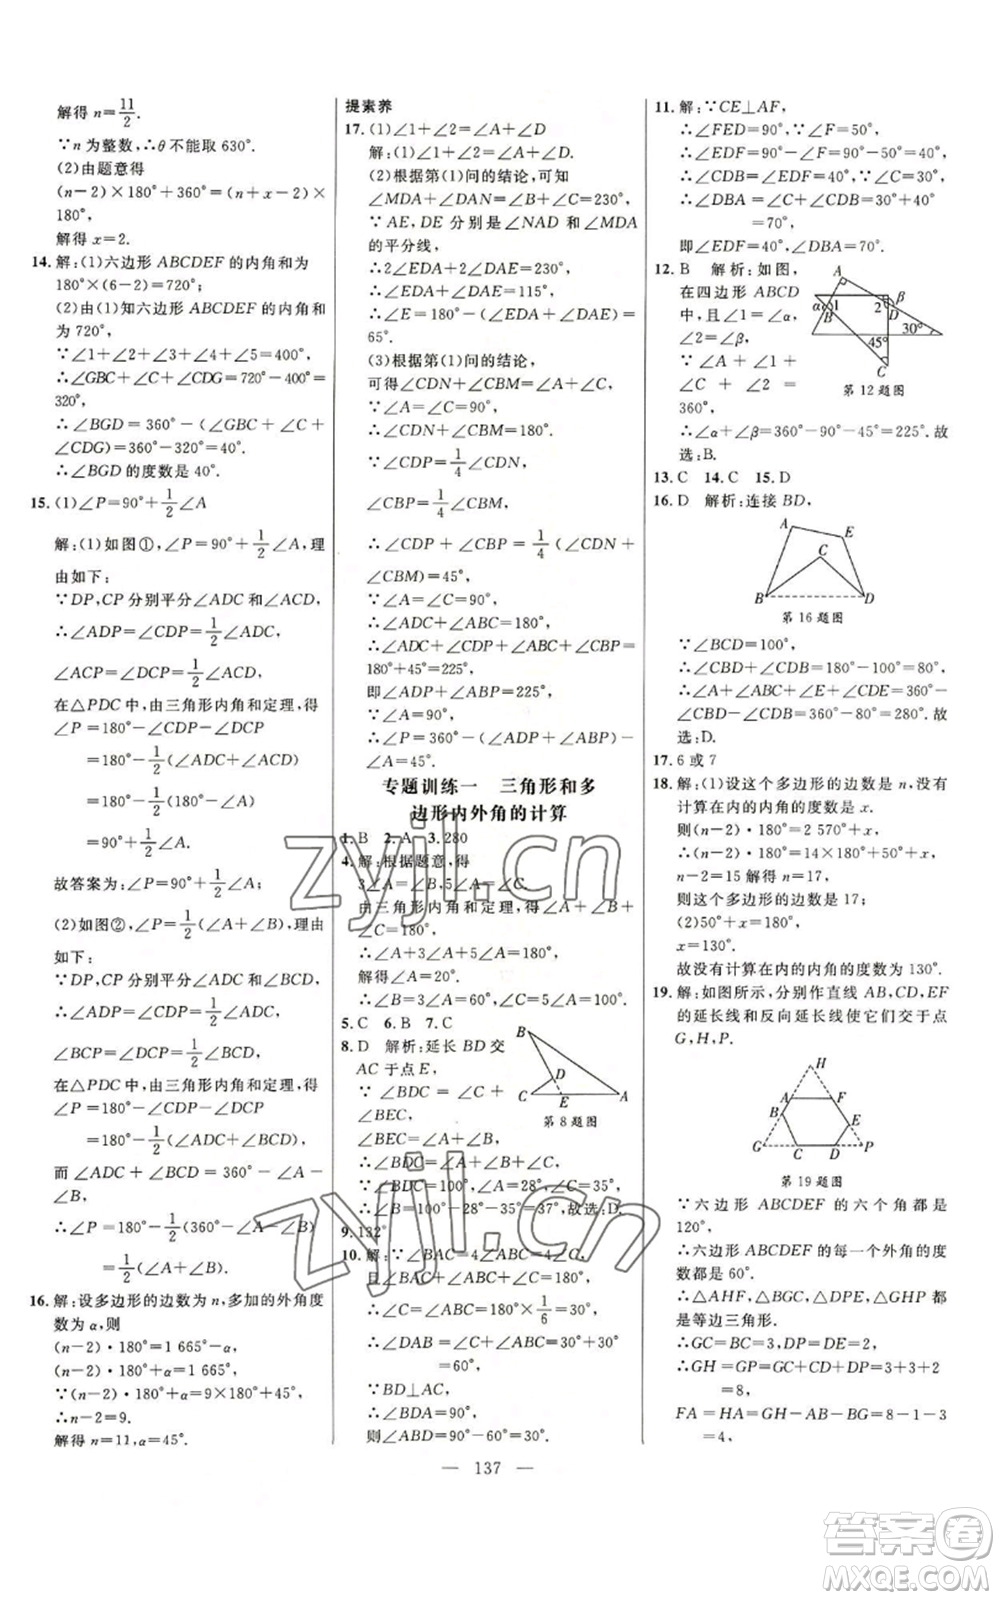 解得 n=11/2.
∵n 为整数,∴θ不能取 630°.
(2)由题意得
(n-2)×180°+360°=(n+x-2)×
180°,
解得 x=2.
14. 解:(1)六边形 ABCDEF 的内角和为
180°×(6-2)=720°;
(2)由(1)知六边形 ABCDEF 的内角和
为 720°,
∵∠1+∠2+∠3+∠4+∠5=400°,
∴∠GBC+∠C+∠CDG=720°-400°=
320°,
∴∠BGD=360°-(∠GBC+∠C+
∠CDG)=360°-320°=40°.
∴∠BGD 的度数是 40°.
15. (1)∠P=90°+1/2∠A
解:(1)如图①,∠P=90°+1/2∠A,理
由如下:
∵DP,CP 分别平分∠ADC 和∠ACD,
∴∠ADP=∠CDP=1/2∠ADC,
∠ACP=∠DCP=1/2∠ACD,
在△PDC 中,由三角形内角和定理,得
∠P=180°-∠CDP-∠DCP
=180°-1/2(∠ADC+∠ACD)
=180°-1/2(180°-∠A)
=90°+1/2∠A.
故答案为:∠P=90°+1/2∠A;
(2)如图②,∠P=1/2(∠A+∠B),理由
如下:
∵DP,CP 分别平分∠ADC 和∠BCD,
∴∠ADP=∠CDP=1/2∠ADC,
∠BCP=∠DCP=1/2∠BCD,
在△PDC 中,由三角形内角和定理,得
∠P=180°-∠CDP-∠DCP
=180°-1/2(∠ADC+∠BCD),
而 ∠ADC+∠BCD=360°-∠A-
∠B,
∴∠P=180°-1/2(360°-∠A-∠B)=
1/2(∠A+∠B).
16. 解:设多边形的边数为 n,多加的外角度
数为 α,则
(n-2)·180°=1 665°-α,
(n-2)·180°+α=1 665°,
∵(n-2)·180°+α=9×180°+45°,
∴n-2=9.
解得 n=11,α=45°.
提素养
17. (1)∠1+∠2=∠A+∠D
解:(1)∠1+∠2=∠A+∠D.
(2)根据第(1)问的结论,可知
∠MDA+∠DAN=∠B+∠C=230°,
∵AE,DE 分别是∠NAD 和∠MDA
的平分线,
∴2∠EDA+2∠DAE=230°,
∴∠EDA+∠DAE=115°,
∴∠E=180°-(∠EDA+∠DAE)=
65°.
(3)根据第(1)问的结论,
可得∠CDN+∠CBM=∠A+∠C,
∵∠A=∠C=90°,
∴∠CDN+∠CBM=180°.
∵∠CDP=1/4∠CDN,
∠CBP=1/4∠CBM,
∴∠CDP+∠CBP=1/4(∠CDN+
∠CBM)=45°,
∵∠A=∠C=90°,
∴∠ADC+∠ABC=180°,
∴∠ADC+∠CDP+∠ABC+∠CBP=
180°+45°=225°,
即∠ADP+∠ABP=225°,
∵∠A=90°,
∴∠P=360°-(∠ADP+∠ABP)-
∠A=45°.
专题训练一 三角形和多
边形内外角的计算
1. B 2. A 3. 280
4. 解:根据题意,得
3∠A=∠B,5∠A=∠C.
由三角形内角和定理,得∠A+∠B+
∠C=180°,
∴∠A+3∠A+5∠A=180°,
解得∠A=20°.
∴∠B=3∠A=60°,∠C=5∠A=100°.
5. C 6. B 7. C
8. D 解析:延长 BD 交
AC 于点 E,
∵∠BDC=∠C+
∠BEC,
∠BEC=∠A+∠B,
∴∠BDC=∠A+∠B+∠C,
∵∠BDC=100°,∠A=28°,∠C=35°,
∴∠B=100°-28°-35°=37°,故选:D.
B
D
C
E
A
第 8 题图
9. 132°
10. 解:∵∠BAC=4∠ABC=4∠C,
且∠BAC+∠ABC+∠C=180°,
∴∠C=∠ABC=180°×1/6=30°,
∴∠DAB=∠C+∠ABC=30°+30°
=60°,
∵BD⊥AC,
∴∠BDA=90°,
则∠ABD=90°-60°=30°.
11. 解:∵CE⊥AF,
∴∠FED=90°,∵∠F=50°,
∴∠EDF=90°-50°=40°,
∴∠CDB=∠EDF=40°,∵∠C=30°,
∴∠DBA=∠C+∠CDB=30°+40°
=70°,
即∠EDF=40°,∠DBA=70°.
12. B 解析:如图,
在四边形 ABCD
中,且∠1=∠α,
∠2=∠β,
∵∠A+∠1+
∠C+∠2=
360°,
∴∠α+∠β=360°-90°-45°=225°.故
选:B.
A
α
1
B
2
β
D
30°
45°
C
第 12 题图
13. C 14. C 15. D
16. D 解析:连接 BD,
A
E
C
B
D
第 16 题图
∵∠BCD=100°,
∴∠CBD+∠CDB=180°-100°=80°,
∴∠A+∠ABC+∠E+∠CDE=360°-
∠CBD-∠CDB=360°-80°=280°.故
选:D.
17. 6 或 7
18. 解:(1)设这个多边形的边数是 n,没有
计算在内的内角的度数是 x.
则(n-2)·180°=2 570°+x,
(n-2)·180°=14×180°+50°+x,
n-2=15 解得 n=17,
则这个多边形的边数是 17;
(2)50°+x=180°,
x=130°.
故没有计算在内的内角的度数为 130°.
19. 解:如图所示,分别作直线 AB,CD,EF
的延长线和反向延长线使它们交于点
G,H,P.
H
A
F
B
E
G
C
D
P
第 19 题图
∵六边形 ABCDEF 的六个角都是
120°,
∴六边形 ABCDEF 的每一个外角的度
数都是 60°.
∴△AHF,△BGC,△DPE,△GHP 都
是等边三角形.
∴GC=BC=3,DP=DE=2.
∴GH=GP=GC+CD+DP=3+3+2
=8,
FA=HA=GH-AB-BG=8-1-3
=4,
— 137 —
zyjl.cn
zyjl.cn
答案圈
MXQE.COM